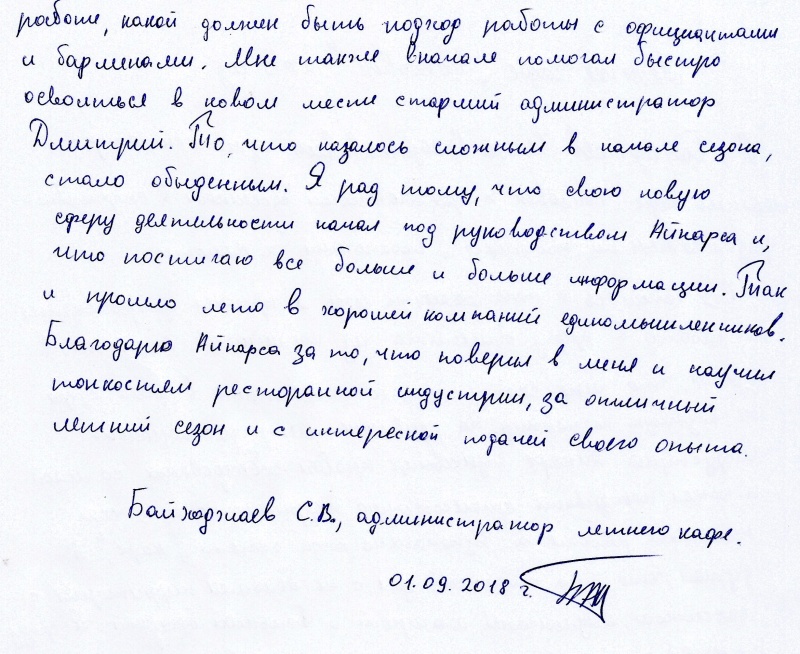 работе, какой должен быть подход работы с официантами
и барменами. Мне также вначале помогал быстро
освоиться в новом месте старший администратор
Дмитрий. То, что казалось сложным в начале сезона,
стало обыденным. Я рад тому, что свою новую
сферу деятельности начал под руководством Айнарса и,
что постигаю все больше и больше информации. Так
и прошло лето в хорошей компании единомышленников.
Благодарю Айнарса за то, что поверил в меня и научил
тонкостям ресторанной индустрии, за отличный
летний сезон и с интересной подачей своего опыта.
Байходжаев С.В., администратор летнего кафе.
01.09.2018 г.